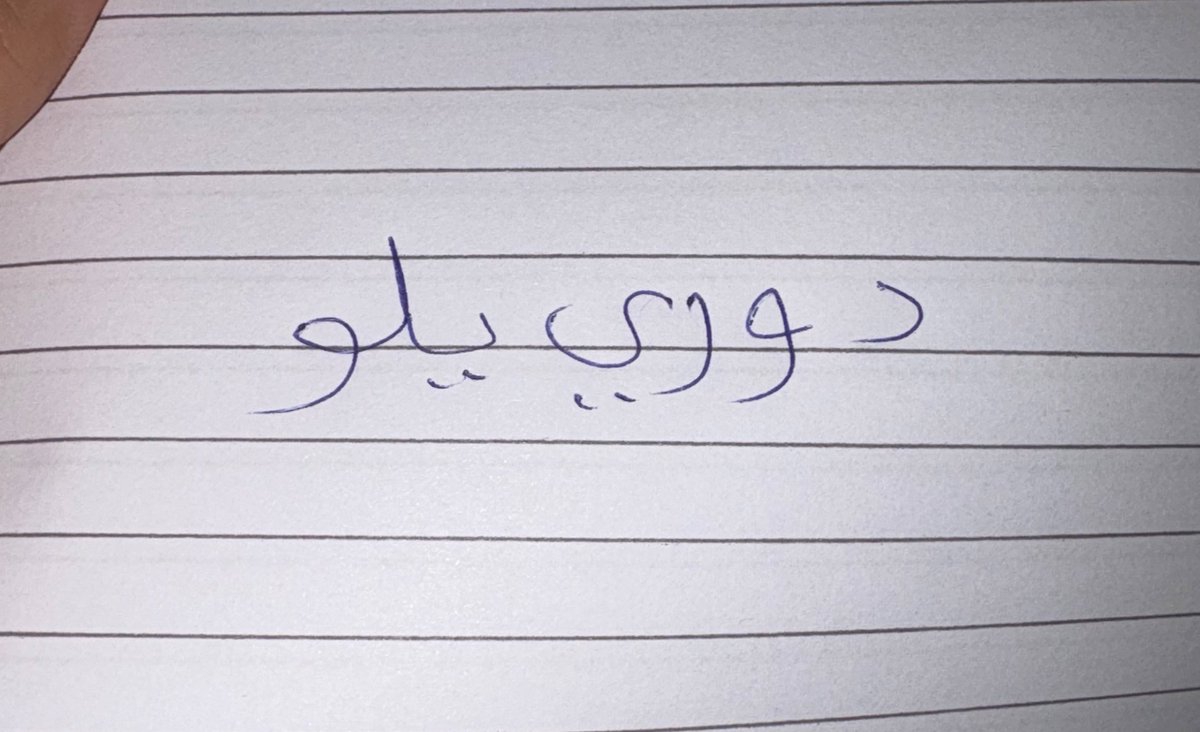 دوري يلو